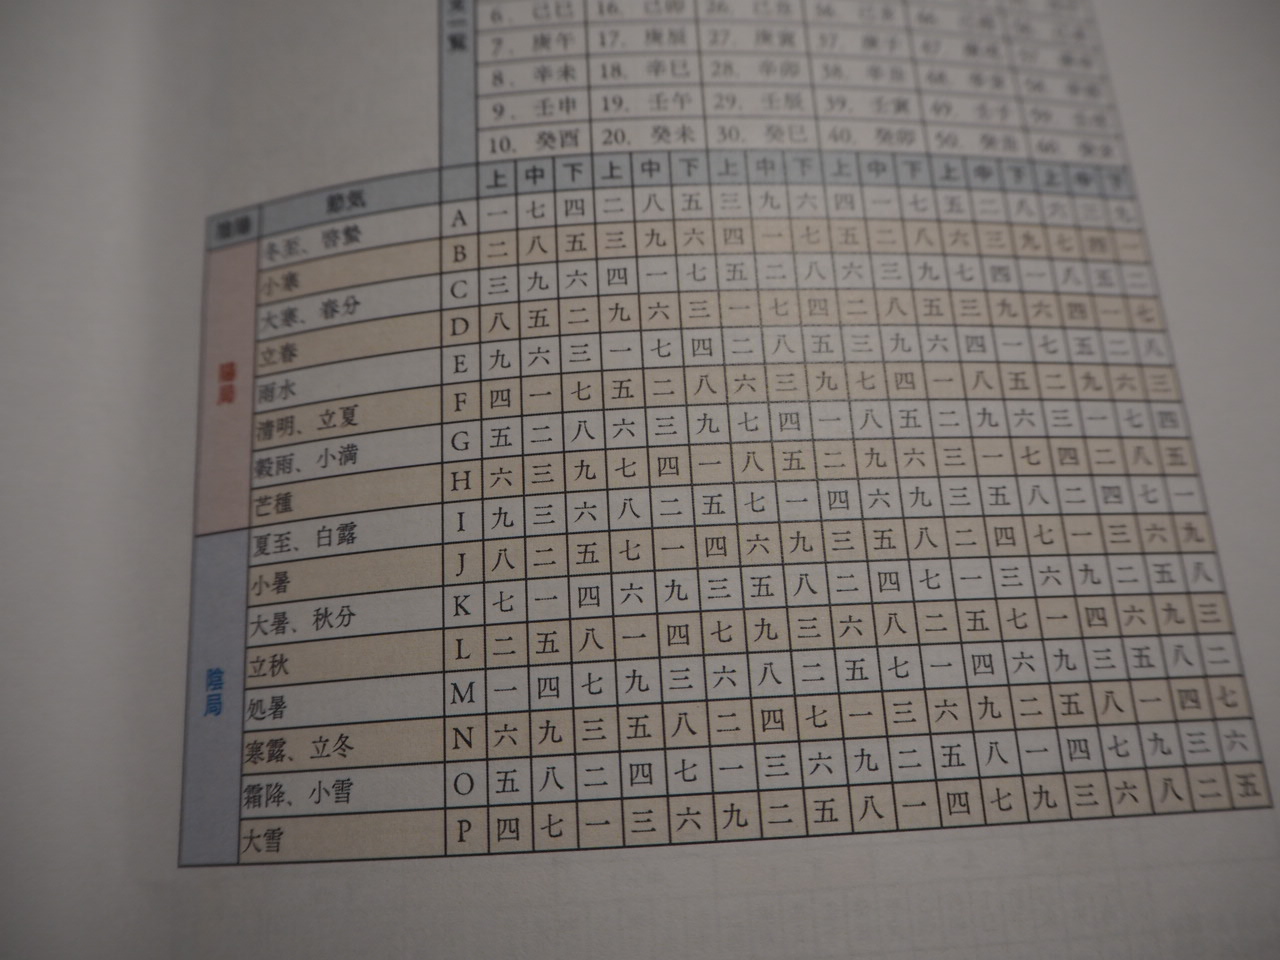 一覧
6. 己巳 16. 己卯 26. 己丑
7. 庚午 17. 庚辰 27. 庚寅 37. 庚子
8. 辛未 18. 辛巳 28. 辛卯 38. 辛丑
9. 壬申 19. 壬午 29. 壬辰 39. 壬寅 49. 壬子
10. 癸酉 20. 癸未 30. 癸巳 40. 癸卯 50. 癸丑 60. 癸亥
陰陽 節気 上 中 下 上 中 下 上 中 下 上 中 下 上 中 下 上 中 下
陽局
冬至、啓蟄 A 一 七 四 二 八 五 三 九 六 四 一 七 五 二 八 六 三 九
小寒 B 二 八 五 三 九 六 四 一 七 五 二 八 六 三 九 七 四 一
大寒、春分 C 三 九 六 四 一 七 五 二 八 六 三 九 七 四 一 八 五 二
立春 D 八 五 二 九 六 三 一 七 四 二 八 五 三 九 六 四 一 七
雨水 E 九 六 三 一 七 四 二 八 五 三 九 六 四 一 七 五 二 八
清明、立夏 F 四 一 七 五 二 八 六 三 九 七 四 一 八 五 二 九 六 三
穀雨、小満 G 五 二 八 六 三 九 七 四 一 八 五 二 九 六 三 一 七 四
芒種 H 六 三 九 七 四 一 八 五 二 九 六 三 一 七 四 二 八 五
陰局
夏至、白露 I 九 三 六 八 二 五 七 一 四 六 九 三 五 八 二 四 七 一
小暑 J 八 二 五 七 一 四 六 九 三 五 八 二 四 七 一 三 六 九
大暑、秋分 K 七 一 四 六 九 三 五 八 二 四 七 一 三 六 九 二 五 八
立秋 L 二 五 八 一 四 七 九 三 六 八 二 五 七 一 四 六 九 三
処暑 M 一 四 七 九 三 六 八 二 五 七 一 四 六 九 三 五 八 二
寒露、立冬 N 六 九 三 五 八 二 四 七 一 三 六 九 二 五 八 一 四 七
霜降、小雪 O 五 八 二 四 七 一 三 六 九 二 五 八 一 四 七 九 三 六
大雪 P 四 七 一 三 六 九 二 五 八 一 四 七 九 三 六 八 二 五